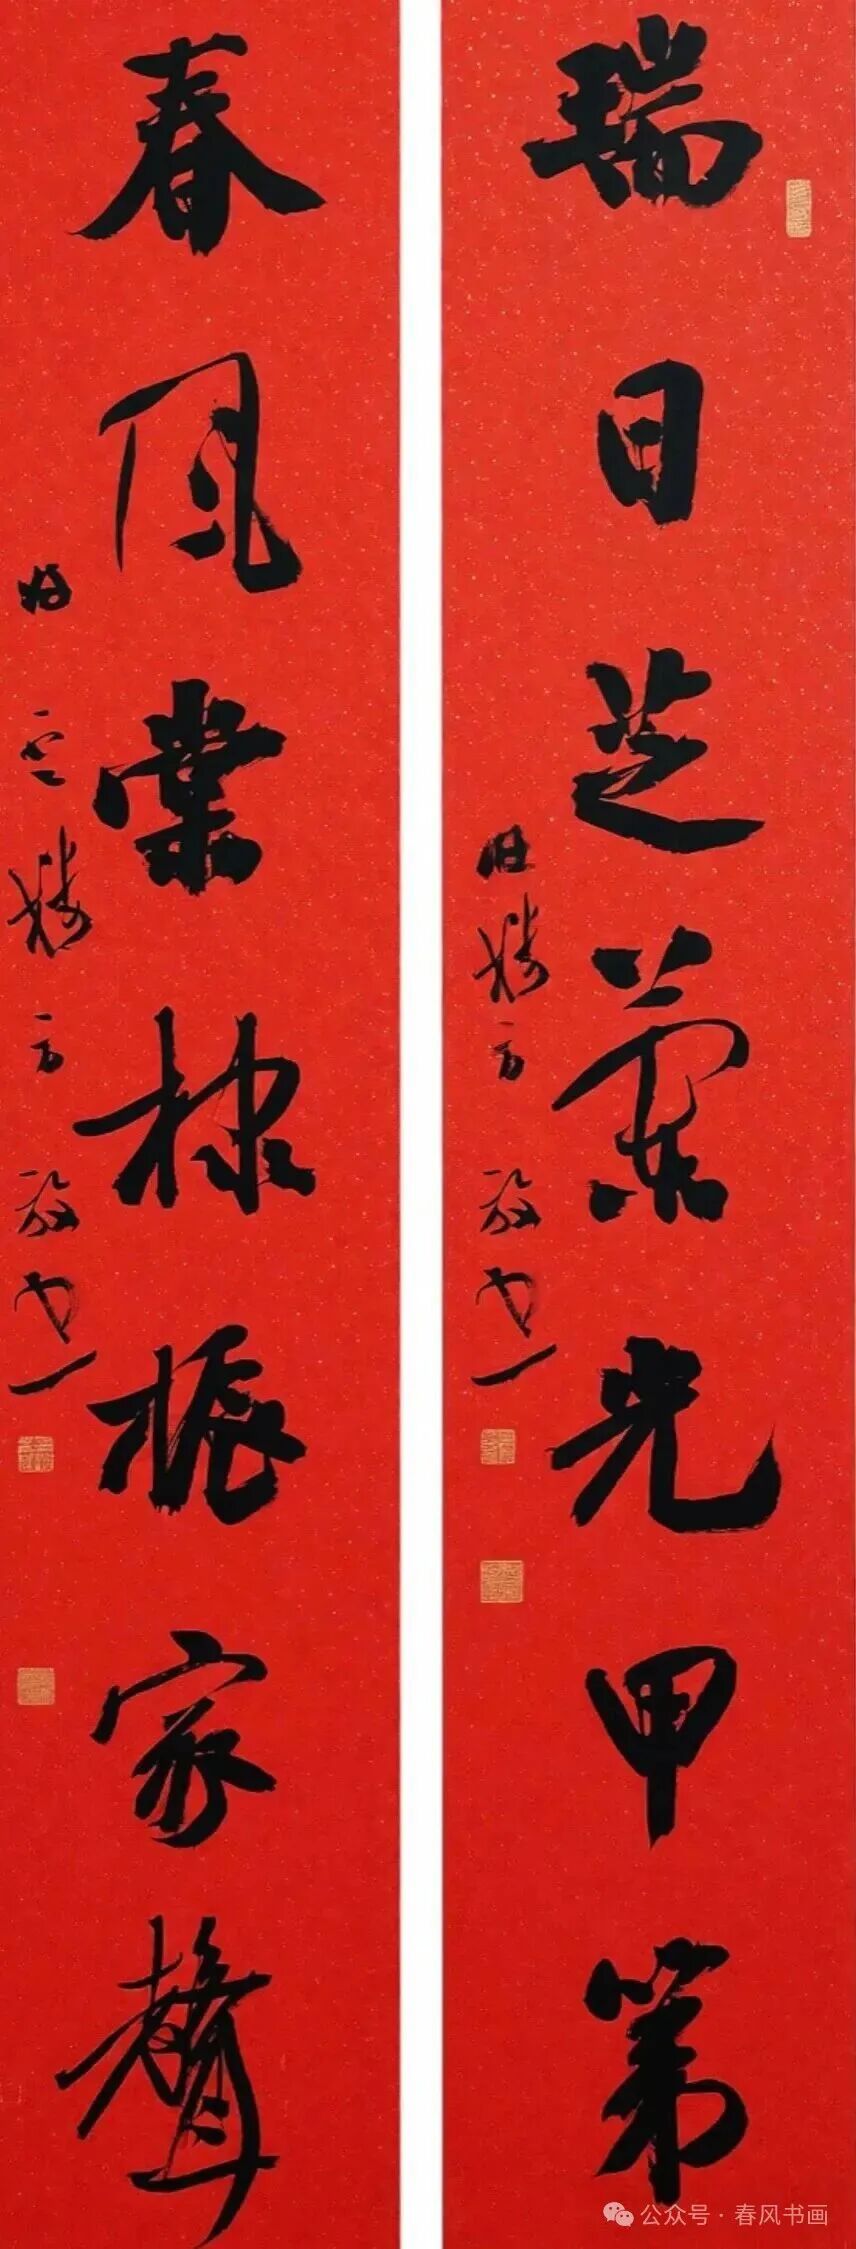 瑞日芝蘭光甲第
春風棠棣振家聲
公众号·春风书画